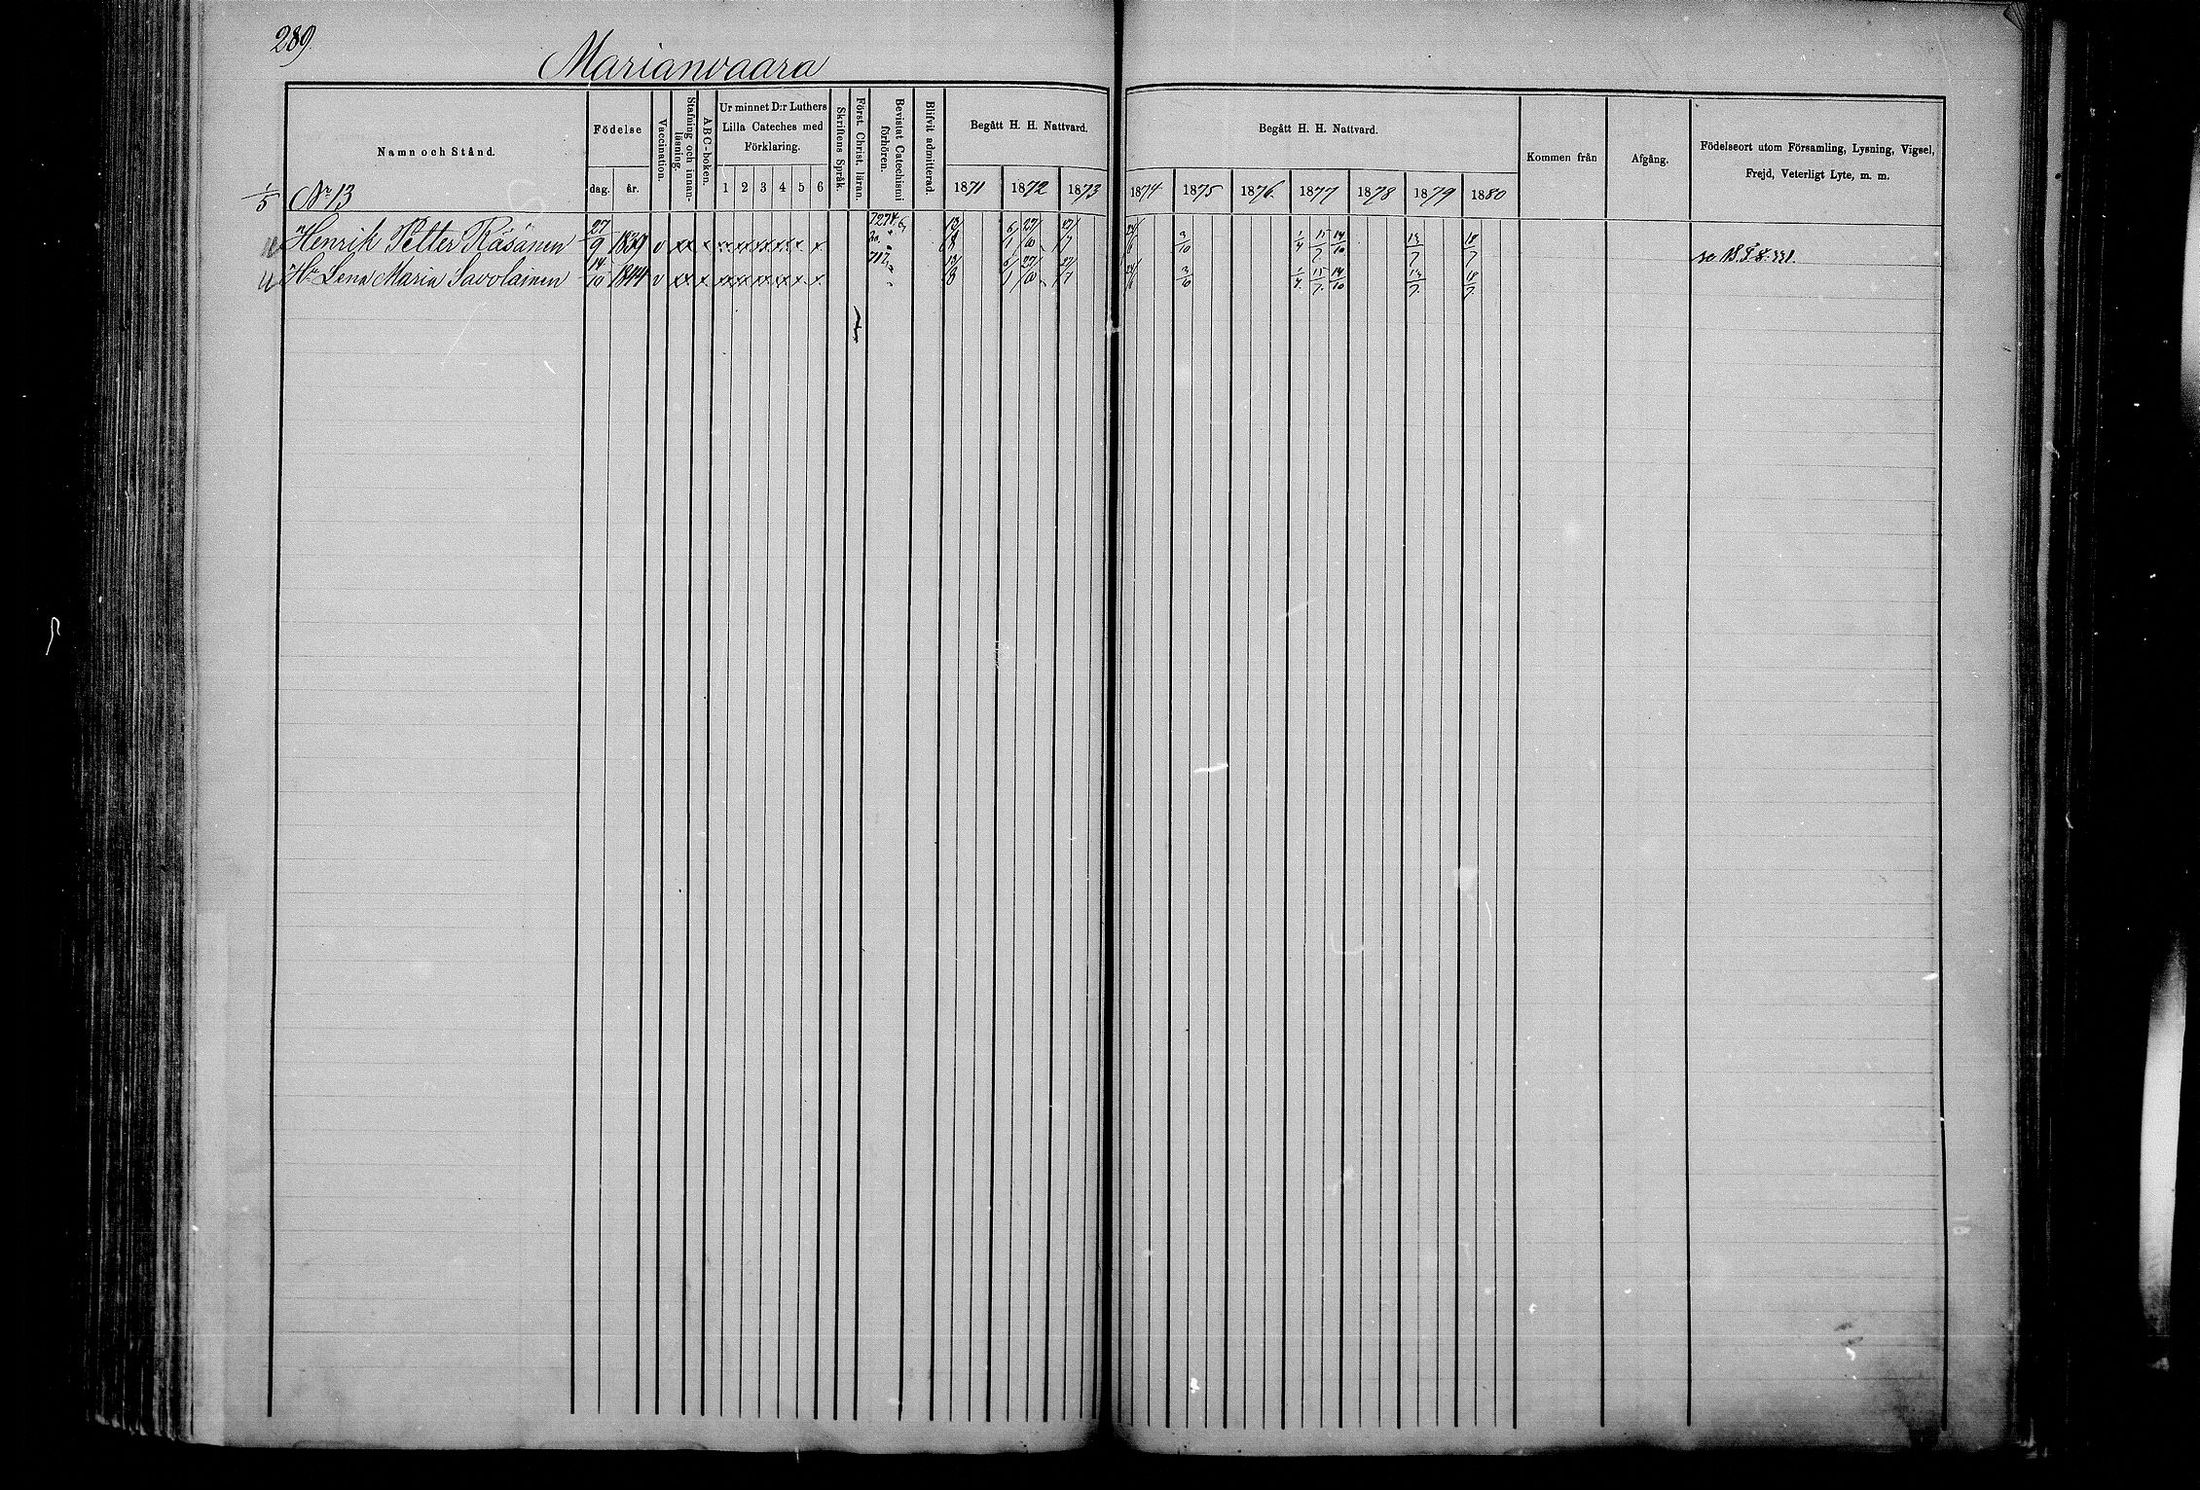 289.
Marianvaara
Namn och Stånd.
Födelse
dag. år.
Vaccination.
Stafning och innan-läsning.
ABC-boken.
Ur minnet D:r Luthers
Lilla Cateches med
Förklaring.
1 2 3 4 5 6
Skriftens Språk.
Först. Christ. läran.
Bevistat Catechismi förhören.
Blifvit admitterad.
Begått H. H. Nattvard.
1871 1872 1873
Begått H. H. Nattvard.
1874 1875 1876. 1877 1878 1879 1880
Kommen från
Afgång.
Födelseort utom Församling, Lysning, Vigsel,
Frejd, Veterligt Lyte, m. m.
1/5 Nr 13
Henrik Petter Räsänen 27/9 1839 v xx x x x x x x x x 13/8 6/1 27/10 27/7 24/6 3/10 1/4 15/7 14/10 13/7 18/7
Hu Lena Maria Savolainen 14/10 1844 v xx x x x x x x x x 13/8 6/1 27/10 27/7 24/6 3/10 1/4 15/7 14/10 13/7 18/7